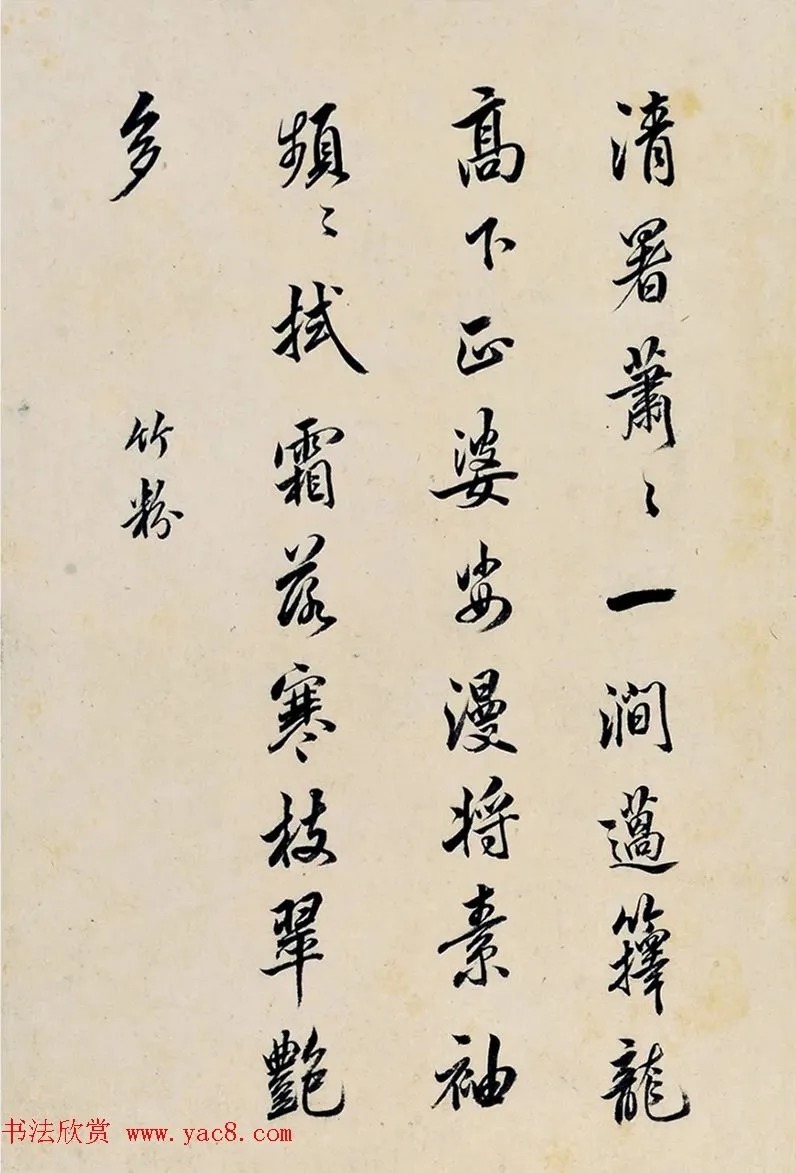 清暑蕭〻一澗薖籜龍
高下正婆娑漫將素袖
頻〻拭霜落寒枝翠艷
多
竹粉
书法欣赏 www.yac8.com